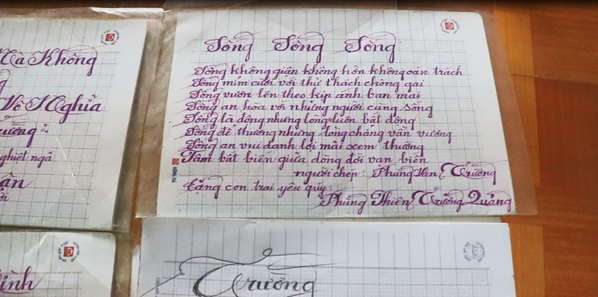 Sống Sống Sống
Sống không giận không hờn không oán trách
Sống mỉm cười với thử thách chông gai
Sống vươn lên theo kịp ánh ban mai
Sống an hòa với những người cùng sống
Sống là động nhưng lòng luôn bất động
Sống để thương nhưng lòng chẳng vấn vương
Sống an vui danh lợi mãi xem thường
Tâm bất biến giữa dòng đời vạn biến
người chép: Phùng Văn Trường
tặng con trai yêu quý:
Phùng Thiên Trường Quảng
Mà Không
Vô Nghĩa
nghiệt ngã
Trường